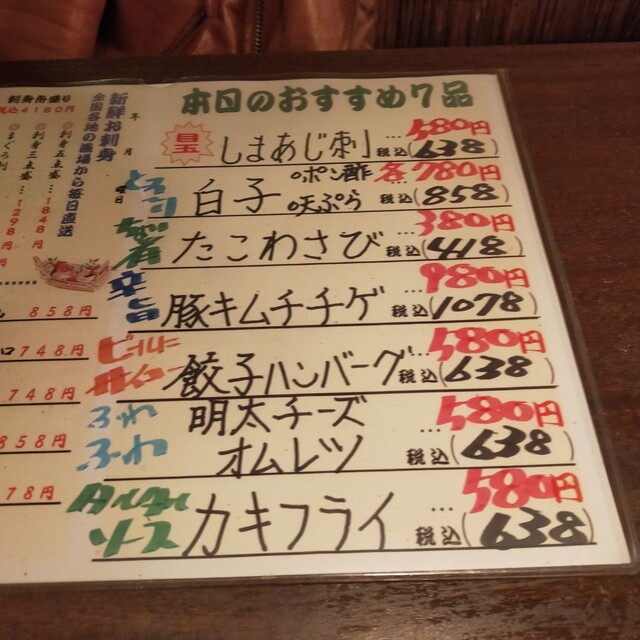 本日のおすすめ7品
目玉 しまあじ刺 …580円 税込(638)
とろーり 白子 ○ポン酢 ○天ぷら 各780円 税込(858)
たこわさび …380円 税込(418)
辛旨 豚キムチチゲ …980円 税込(1078)
ビールに 餃子ハンバーグ …580円 税込(638)
ふわふわ 明太チーズオムレツ …580円 税込(638)
タルタルソース カキフライ …580円 税込(638)
年 月 曜日
新鮮お刺身
全国各地の漁場から毎日直送
刺身舟盛り
税込4180円
◎刺身五点盛…1848円
◎刺身三点盛…1298円
858円
748円
748円
858円
78円